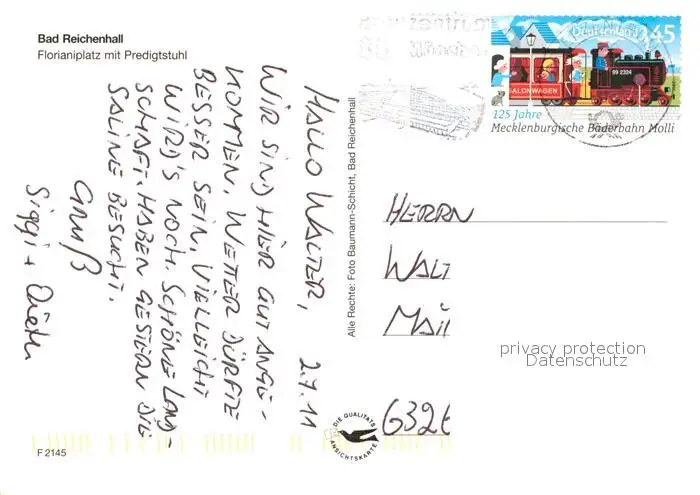 Bad Reichenhall
Florianiplatz mit Predigtstuhl
Deutschland 45
99 2324
SALONWAGEN
125 Jahre
Mecklenburgische Bäderbahn Molli
HALLO WALTER, 2.7.11
WIR SIND HIER GUT ANGE-
KOMMEN. WETTER DÜRFTE
BESSER SEIN, VIELLEICHT
WIRD'S NOCH. SCHÖNE LAND-
SCHAFT. HABEN GESTERN DIE
SALINE BESUCHT.
GRUß
Siggi +
Alle Rechte: Foto Baumann-Schicht, Bad Reichenhall
HERRN
WALT
MAI
6326
privacy protection
Datenschutz
DIE QUALITÄTS
ANSICHTSKARTE
F 2145